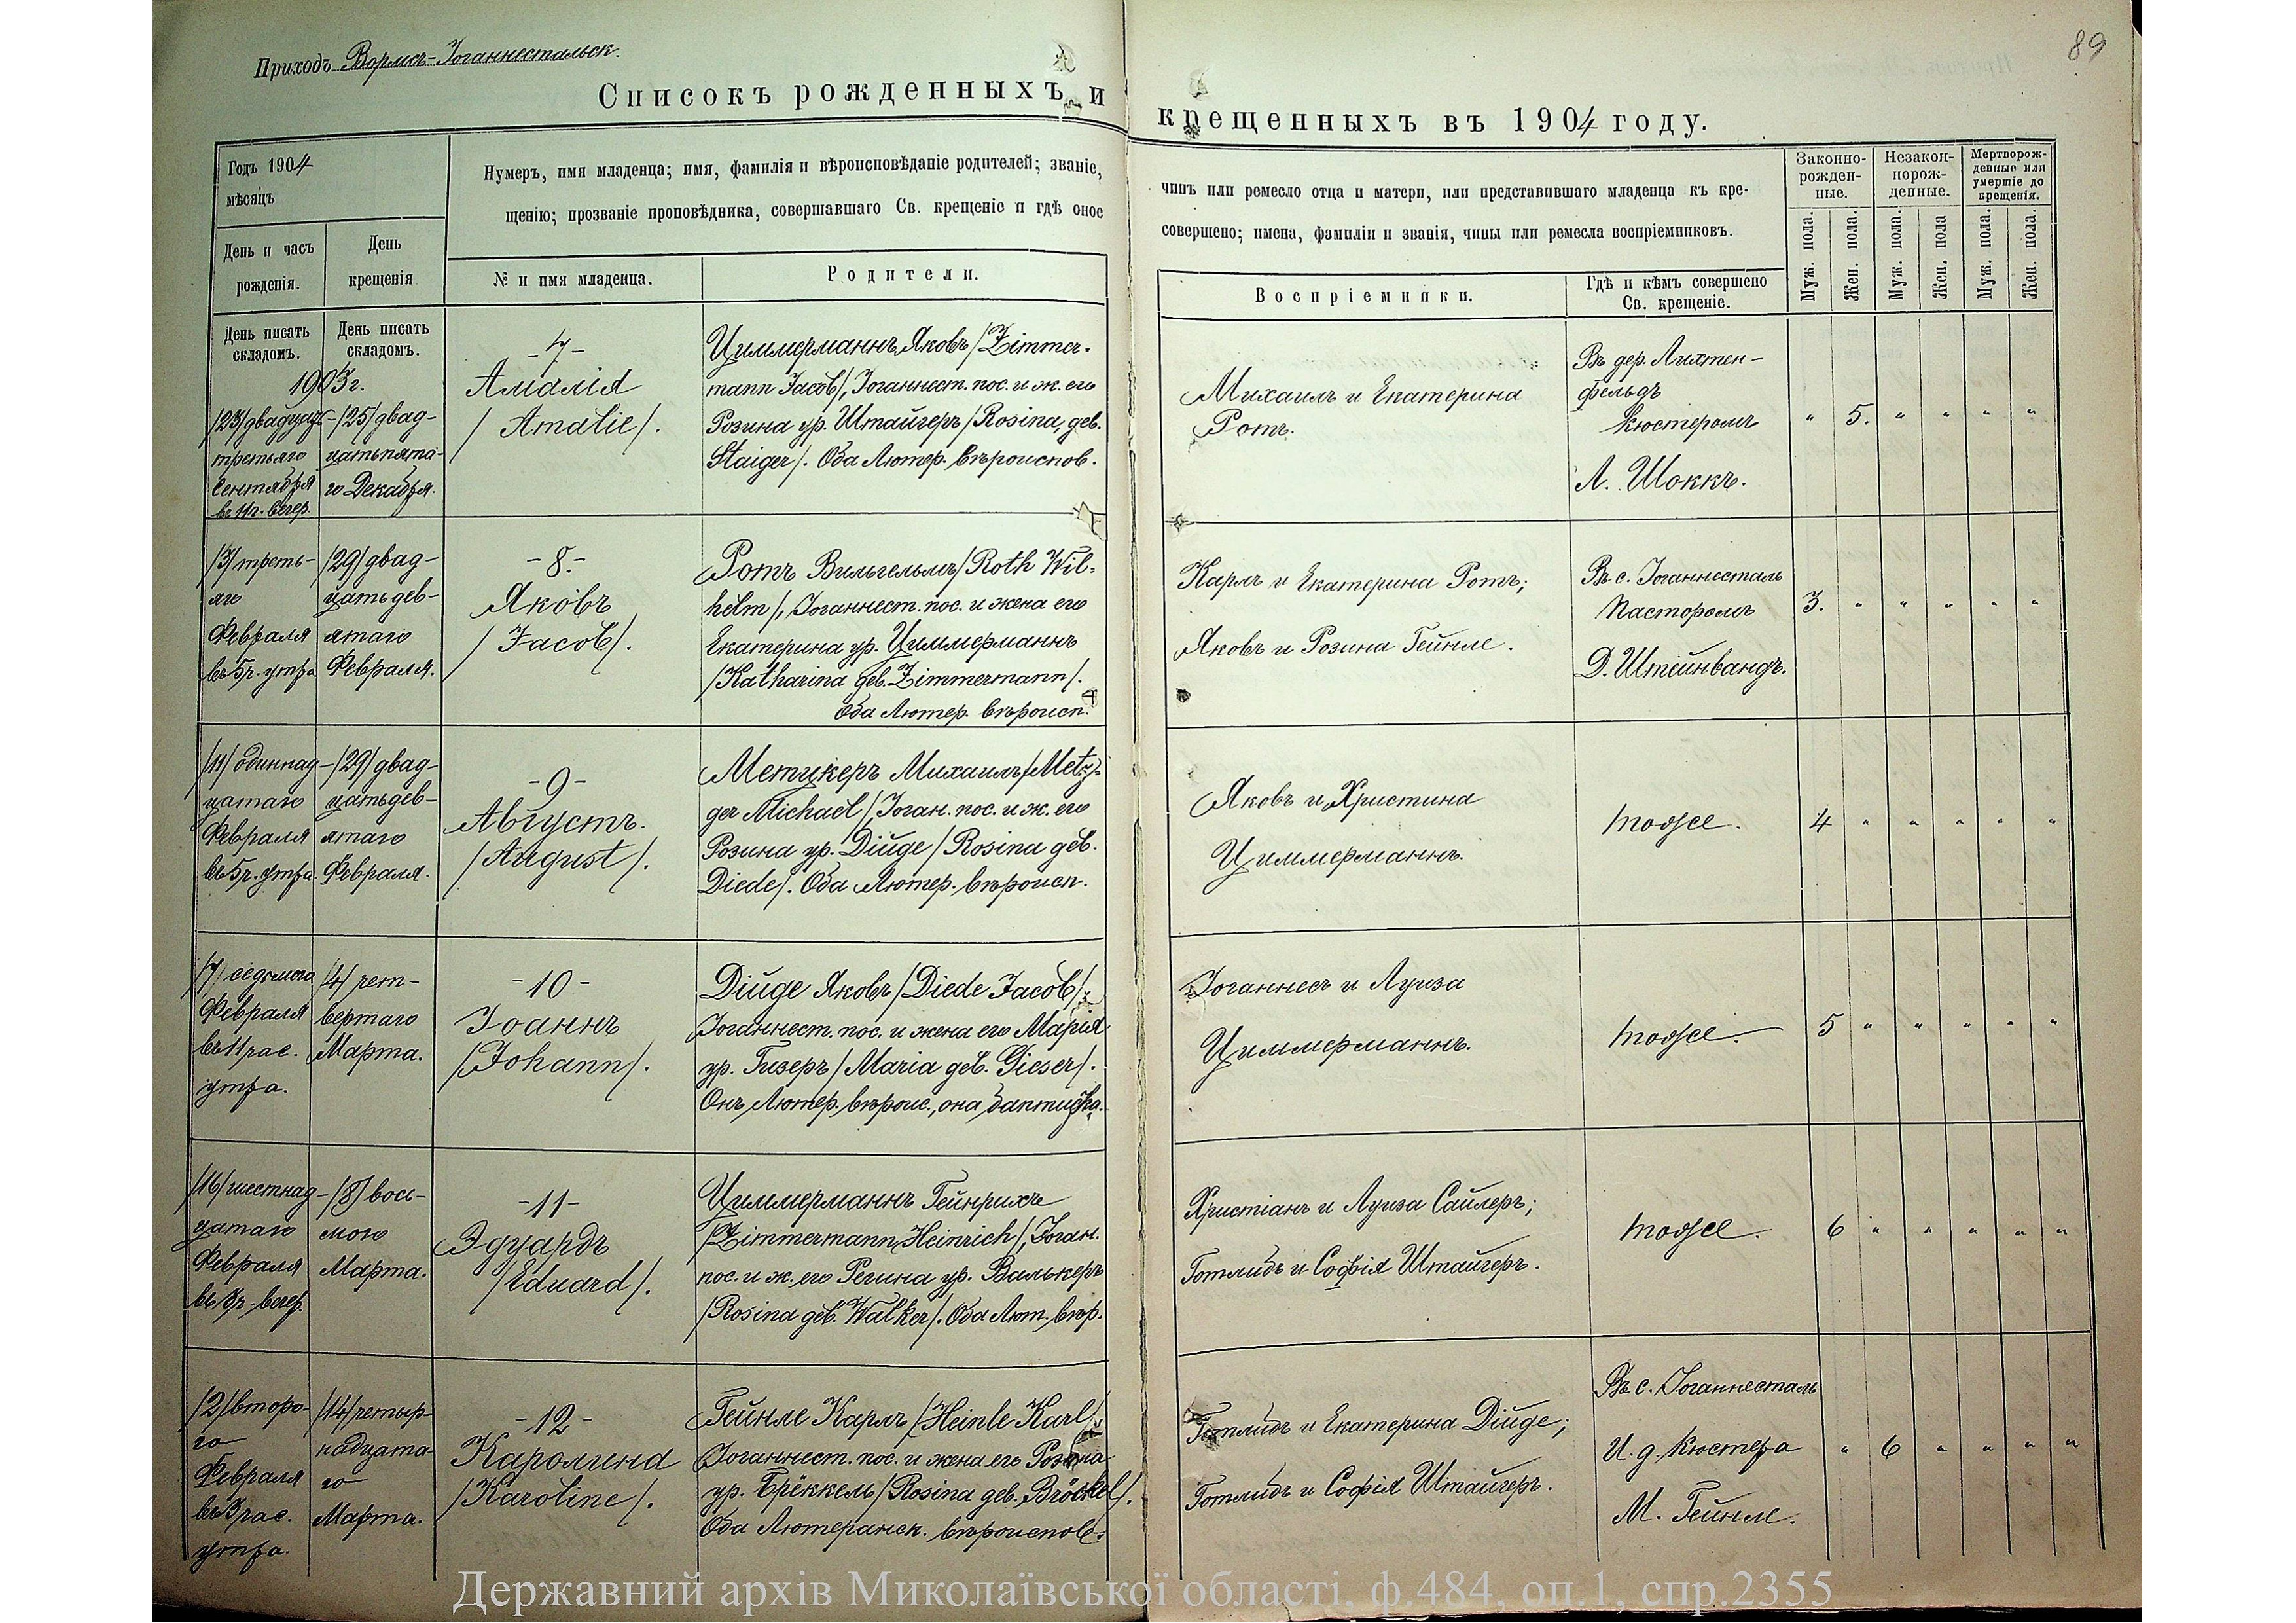 89
Приходъ Вормсъ-Іоганнестальск.
Списокъ рожденныхъ и крещенныхъ въ 1904 году.
Годъ 1904
мѣсяцъ
День и часъ
рожденія.
День
крещенія
Нумеръ, имя младенца; имя, фамилія и вѣроисповѣданіе родителей; званіе, чинъ или ремесло отца и матери, или представившаго младенца къ кре-
щенію; прозваніе проповѣдника, совершавшаго Св. крещеніе и гдѣ оное совершено; имена, фамиліи и званія, чины или ремесла воспріемниковъ.
№ и имя младенца.
Родители.
Воспріемники.
Гдѣ и кѣмъ совершено
Св. крещеніе.
Законно-
рожден-
ные.
Незакон-
норож-
денные.
Мертворож-
денные или
умершіе до
крещенія.
Муж. пола.
Жен. пола.
Муж. пола.
Жен. пола
Муж. пола.
Жен. пола.
День писать
складомъ.
День писать
складомъ.
1903г.
/23/двадцать-
третьяго
Сентября
въ 11 ч. вечер.
/25/двад-
цатьпята-
го Декабря.
-7-
Амалія
/Amalie/.
Циммерманнъ Яковъ /Zimmer-
mann Jacob/, Іоганнест. пос. и ж. его
Розина ур. Штайгеръ /Rosina, geb.
Staiger/. Оба Лютер. вѣроиспов.
Михаилъ и Екатерина
Ротъ.
Въ дер. Лихтен-
фельдъ
Кюстеромъ
А. Шоккъ.
" 5. " " " "
/3/треть-
яго
Февраля
въ 5 ч. утра
/29/двад-
цатьдев-
ятаго
Февраля.
-8.-
Яковъ
/Jacob/.
Ротъ Вильгельмъ /Roth Wil-
helm/, Іоганнест. пос. и жена его
Екатерина ур. Циммерманнъ
/Katharina geb. Zimmermann/.
Оба Лютер. вѣроисп.
Карлъ и Екатерина Ротъ;
Яковъ и Розина Гейнле.
Въ с. Іоганнесталь
Пасторомъ
Д. Штейнвандъ.
3. " " " " "
/11/одиннад-
цатаго
Февраля
въ 5 ч. утра.
/29/двад-
цатьдев-
ятаго
Февраля.
-9-
Августъ.
/August/.
Метцкеръ Михаилъ /Metz-
ger Michael/, Іоган. пос. и ж. его
Розина ур. Дійде /Rosina geb.
Diede/. Оба Лютер. вѣроисп.
Яковъ и Христина
Циммерманнъ.
тоже.
4 " " " " "
/7/ седьмого
Февраля
въ 11 час.
утра.
/4/ чет-
вертаго
Марта.
-10-
Іоаннъ
/Johann/.
Дійде Яковъ /Diede Jacob/,
Іоганнест. пос. и жена его Марія
ур. Гизеръ /Maria geb. Gieser/.
Онъ Лютер. вѣроис., она баптистка.
Іоганнесъ и Луиза
Циммерманнъ.
тоже.
5 " " " " "
/16/шестнад-
цатаго
Февраля
вечер.
/8/ вось-
мого
Марта.
-11-
Эдуардъ
/Eduard/.
Циммерманнъ Гейнрихъ
/Zimmermann Heinrich/, Іоган.
пос. и ж. его Регина ур. Валькеръ
/Rosina geb. Walker/. Оба Лют. вѣр.
Христіанъ и Луиза Сайлеръ;
Готлибъ и Софія Штайгеръ.
тоже.
6 " " " " "
/2/второ-
го
Февраля
въ 3 час.
утра.
/14/четыр-
надцата-
го
Марта.
-12-
Каролина
/Karoline/.
Гейнле Карлъ /Heinle Karl/,
Іоганнест. пос. и жена его Розина
ур. Брёккель /Rosina geb. Bröckel/.
Оба Лютеранск. вѣроиспов.
Готлибъ и Екатерина Дійде;
Готлибъ и Софія Штайгеръ.
Въ с. Іоганнесталь
И. д. Кюстера
М. Гейнле.
" 6 " " " "
Державний архів Миколаївської області, ф.484, оп.1, спр.2355